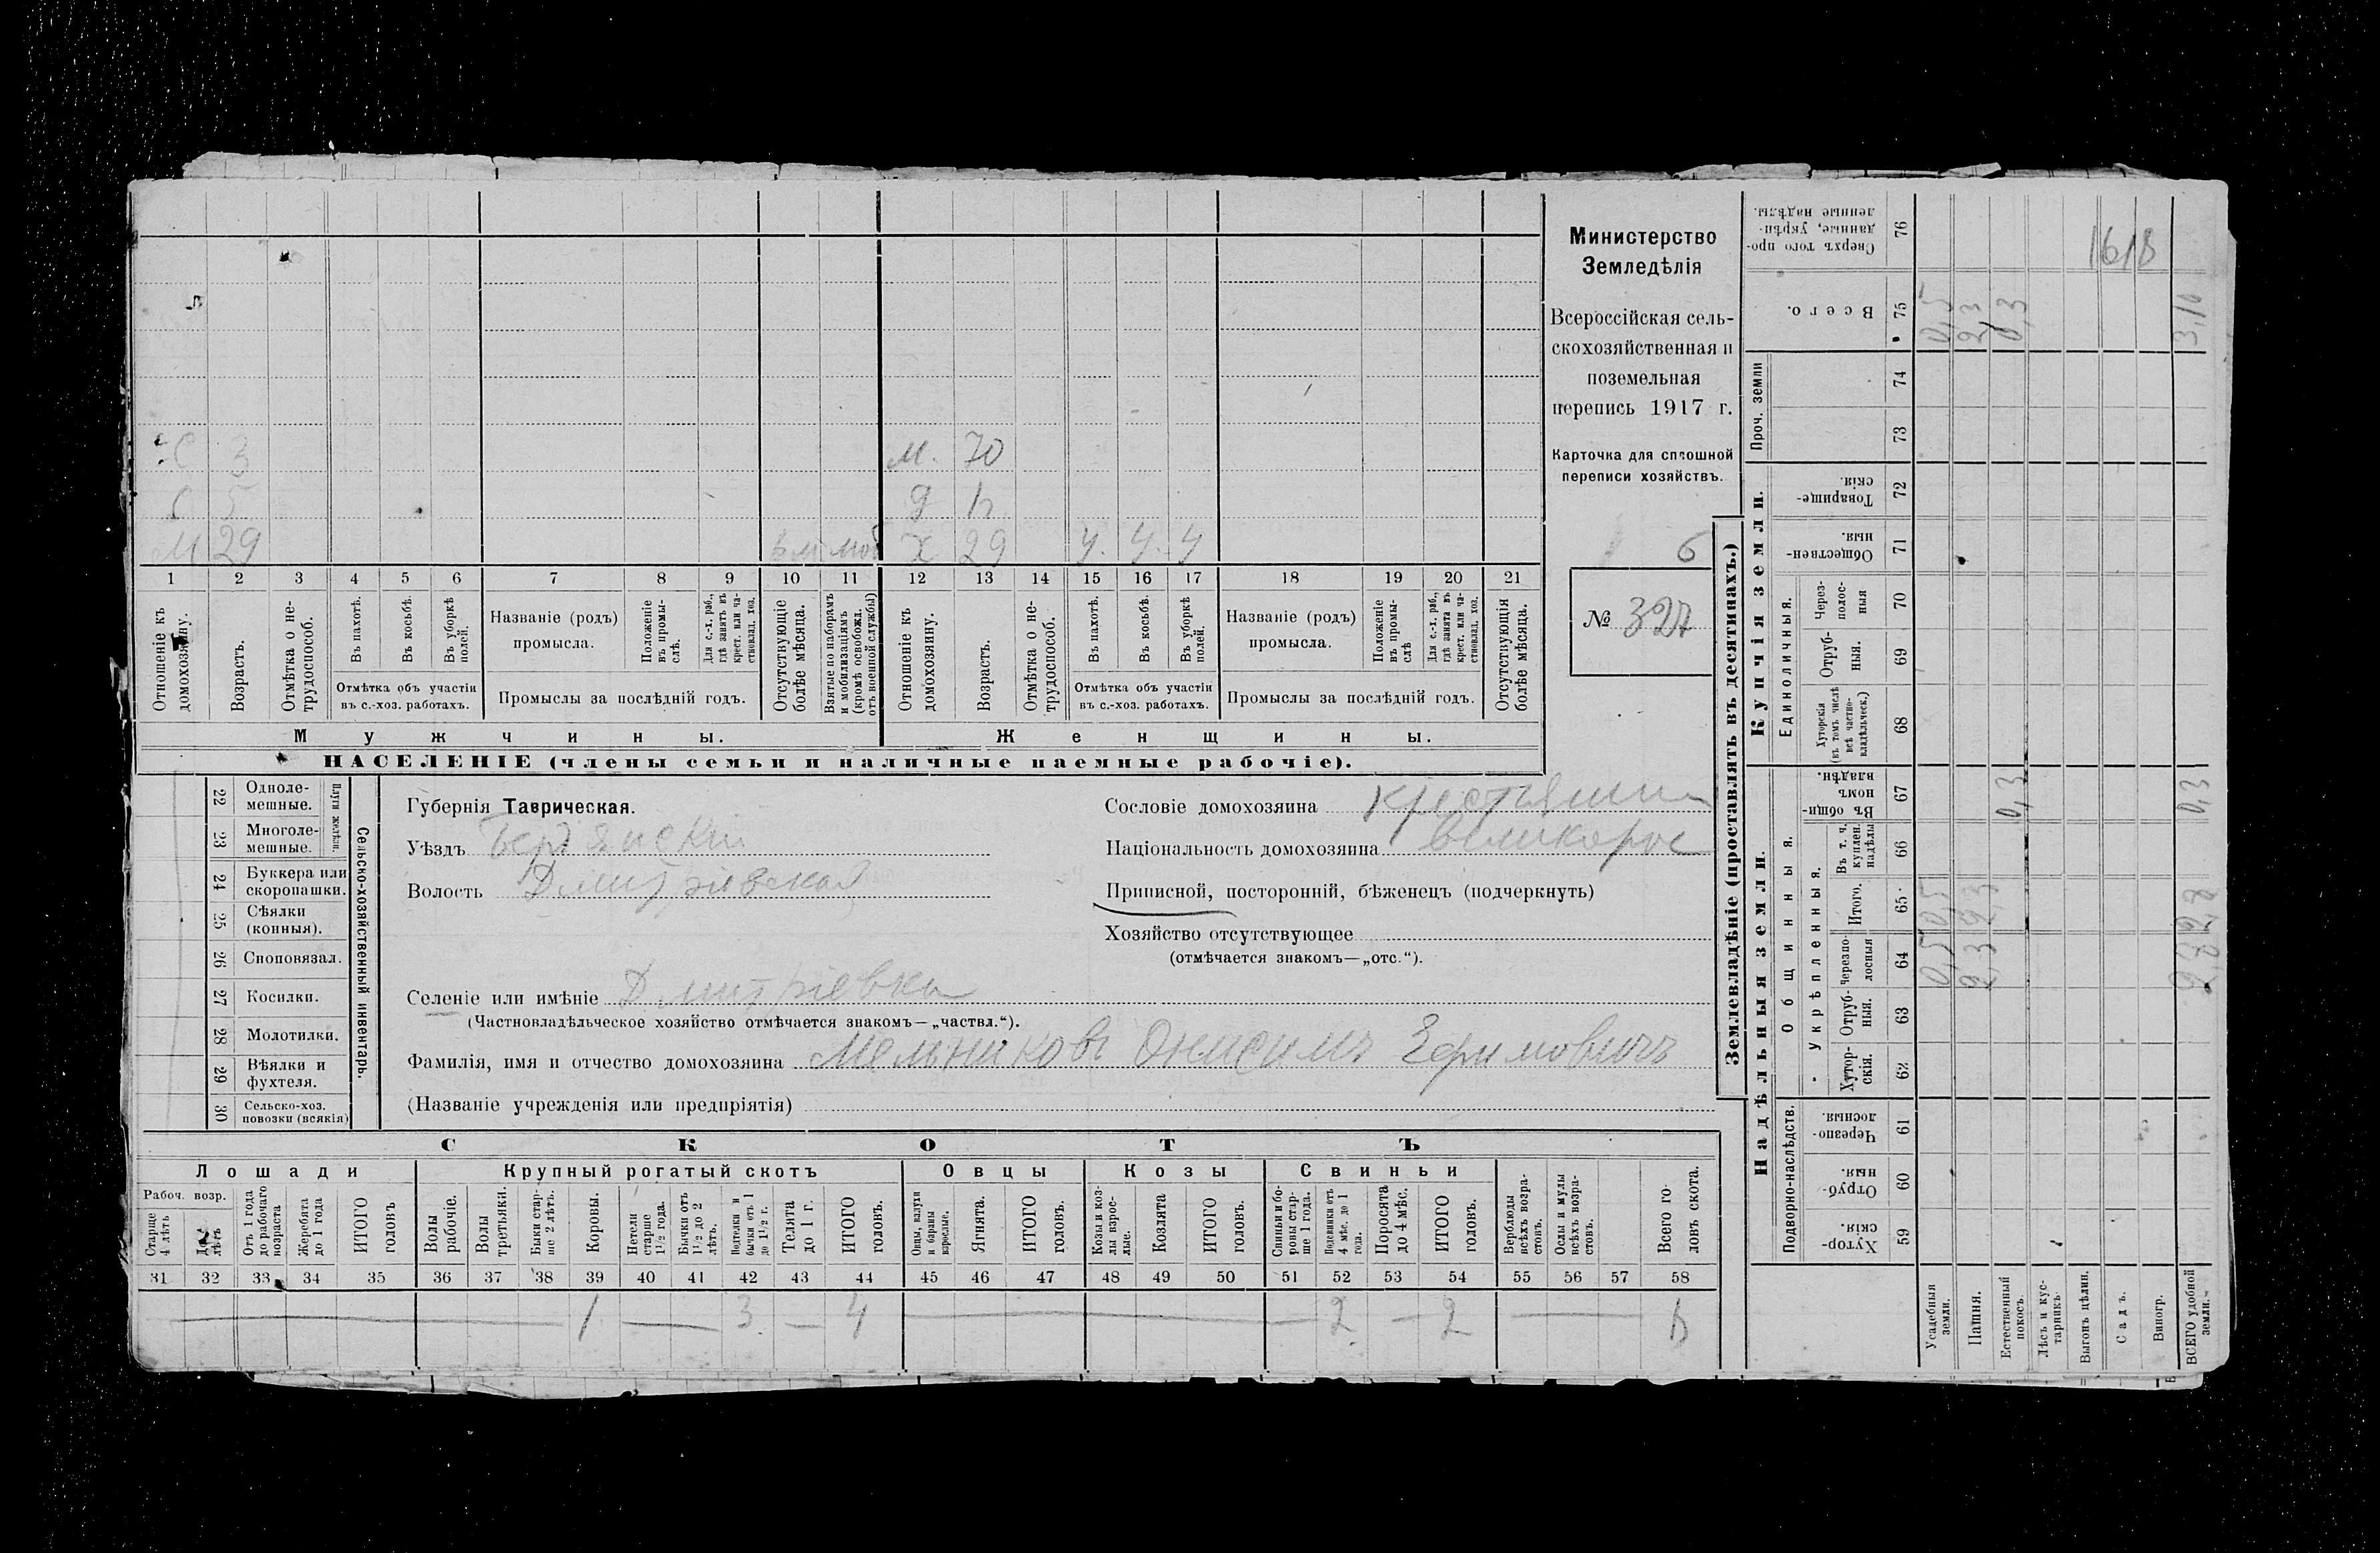 С 3 м. 70
С 5 д п
М 29 вм моб Х 29 у. у. у
1 2 3 4 5 6 7 8 9 10 11 12 13 14 15 16 17 18 19 20 21
Отношеніе къ домохозяину.
Возрастъ.
Отмѣтка о не-
трудоспособ.
Въ пахотѣ.
Въ косьбѣ.
Въ уборкѣ
полей.
Отмѣтка объ участіи
въ с.-хоз. работахъ.
Названіе (родъ)
промысла.
Положеніе
въ промы-
слѣ.
Для с.-х. раб.,
гдѣ занятъ въ
крест. или ча-
стновлад. хоз.
Промыслы за послѣдній годъ.
Отсутствующіе
болѣе мѣсяца.
Взятые по наборамъ
и мобилизаціямъ
(кромѣ освобожд.
отъ военной службы)
Отношеніе къ
домохозяину.
Возрастъ.
Отмѣтка о не-
трудоспособ.
Въ пахотѣ.
Въ косьбѣ.
Въ уборкѣ
полей.
Отмѣтка объ участіи
въ с.-хоз. работахъ.
Названіе (родъ)
промысла.
Положеніе
въ промы-
слѣ
Для с.-х. раб.,
гдѣ занята въ
крест. или ча-
стновлад. хоз.
Промыслы за послѣдній годъ.
Отсутствующія
болѣе мѣсяца.
Мужчины. Женщины.
НАСЕЛЕНІЕ (члены семьи и наличные наемные рабочіе).
Министерство
Земледѣлія
Всероссійская сель-
скохозяйственная и
поземельная
перепись 1917 г.
Карточка для сплошной
переписи хозяйствъ.
6
№ 327
22 Одноле-
мешные.
23 Многоле-
мешные.
Плуги желѣзн.
24 Буккера или
скоропашки.
25 Сѣялки
(конныя).
26 Сноповязал.
27 Косилки.
28 Молотилки.
29 Вѣялки и
фухтеля.
30 Сельско-хоз.
повозки (всякія)
Сельско-хозяйственный инвентарь.
Губернія Таврическая.
Уѣздъ Бердянскій
Волость Дмитріевская
Сословіе домохозяина крестьянин
Національность домохозяина великорос
Приписной, посторонній, бѣженецъ (подчеркнуть)
Хозяйство отсутствующее
(отмѣчается знакомъ—„отс.“).
Селеніе или имѣніе Дмитріевка
(Частновладѣльческое хозяйство отмѣчается знакомъ—„частвл.“).
Фамилія, имя и отчество домохозяина Мельниковъ Онисимъ Ефимовичъ
(Названіе учрежденія или предпріятія)
СКОТЪ
Лошади Крупный рогатый скотъ Овцы Козы Свиньи
Рабоч. возр.
Старше
4 лѣтъ
До 4
лѣтъ
Отъ 1 года
до рабочаго
возраста
Жеребята
до 1 года
ИТОГО
головъ
Волы
рабочіе.
Волы
третьяки.
Быки стар-
ше 2 лѣтъ.
Коровы.
Нетели
старше
1½ года.
Бычки отъ
1½ до 2
лѣтъ.
Подтелки и
бычки отъ 1
до 1½ г.
Телята
до 1 г.
ИТОГО
головъ.
Овцы, валухи
и бараны
взрослые.
Ягнята.
ИТОГО
головъ.
Козы и коз-
лы взрос-
лые.
Козлята
ИТОГО
головъ.
Свиньи и бо-
ровы стар-
ше 1 года.
Подсвинки отъ
4 мѣс. до 1
года.
Поросята
до 4 мѣс.
ИТОГО
головъ.
Верблюды
всѣхъ возра-
стовъ.
Ослы и мулы
всѣхъ возра-
стовъ.
Всего го-
ловъ скота.
31 32 33 34 35 36 37 38 39 40 41 42 43 44 45 46 47 48 49 50 51 52 53 54 55 56 57 58
1 — 3 — 4 — 2 — 2 — 6
Землевладѣніе (проставлять въ десятинахъ.)
Надѣльныя земли. Купчія земли. Проч. земли
Подворно-наслѣдств.
Общинныя.
Укрѣпленныя.
Единоличныя.
Хутор-
скія. 59
Отруб-
ныя. 60
Черезпо-
лосныя. 61
Хутор-
скія. 62
Отруб-
ныя. 63
Черезпо-
лосныя 64
Итого. 65
Въ т. ч.
куплен.
надѣлы 66
Въ общи-
номъ
владѣн. 67
Хуторскія
(въ томъ числѣ
всѣ частно-
владѣльческ.) 68
Отруб-
ныя. 69
Через-
полос-
ныя 70
Обществен-
ныя. 71
Товарище-
скія. 72
73
74
Всего. 75
Сверхъ того про-
данные, укрѣп-
ленные надѣлы. 76
Усадебныя
земли. 0,5 0,5 0,5
Пашня. 2,3 2,3 2,3
Естественный
покосъ. 0,3 0,3
Лѣсъ и кус-
тарникъ
Выгонъ цѣлин.
Садъ.
Виногр.
ВСЕГО удобной
земли. 2,8 2,8 0,3
1618